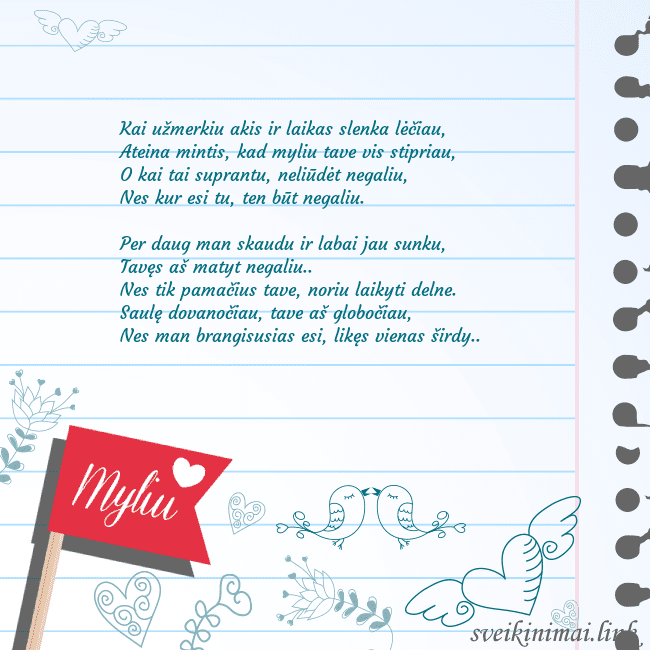 Kai užmerkiu akis ir laikas slenka lėčiau,
Ateina mintis, kad myliu tave vis stipriau,
O kai tai suprantu, neliūdėt negaliu,
Nes kur esi tu, ten būt negaliu.
Per daug man skaudu ir labai jau sunku,
Tavęs aš matyt negaliu..
Nes tik pamačius tave, noriu laikyti delne.
Saulę dovanočiau, tave aš globočiau,
Nes man brangisusias esi, likęs vienas širdy..
Myliu
sveikinimai.link